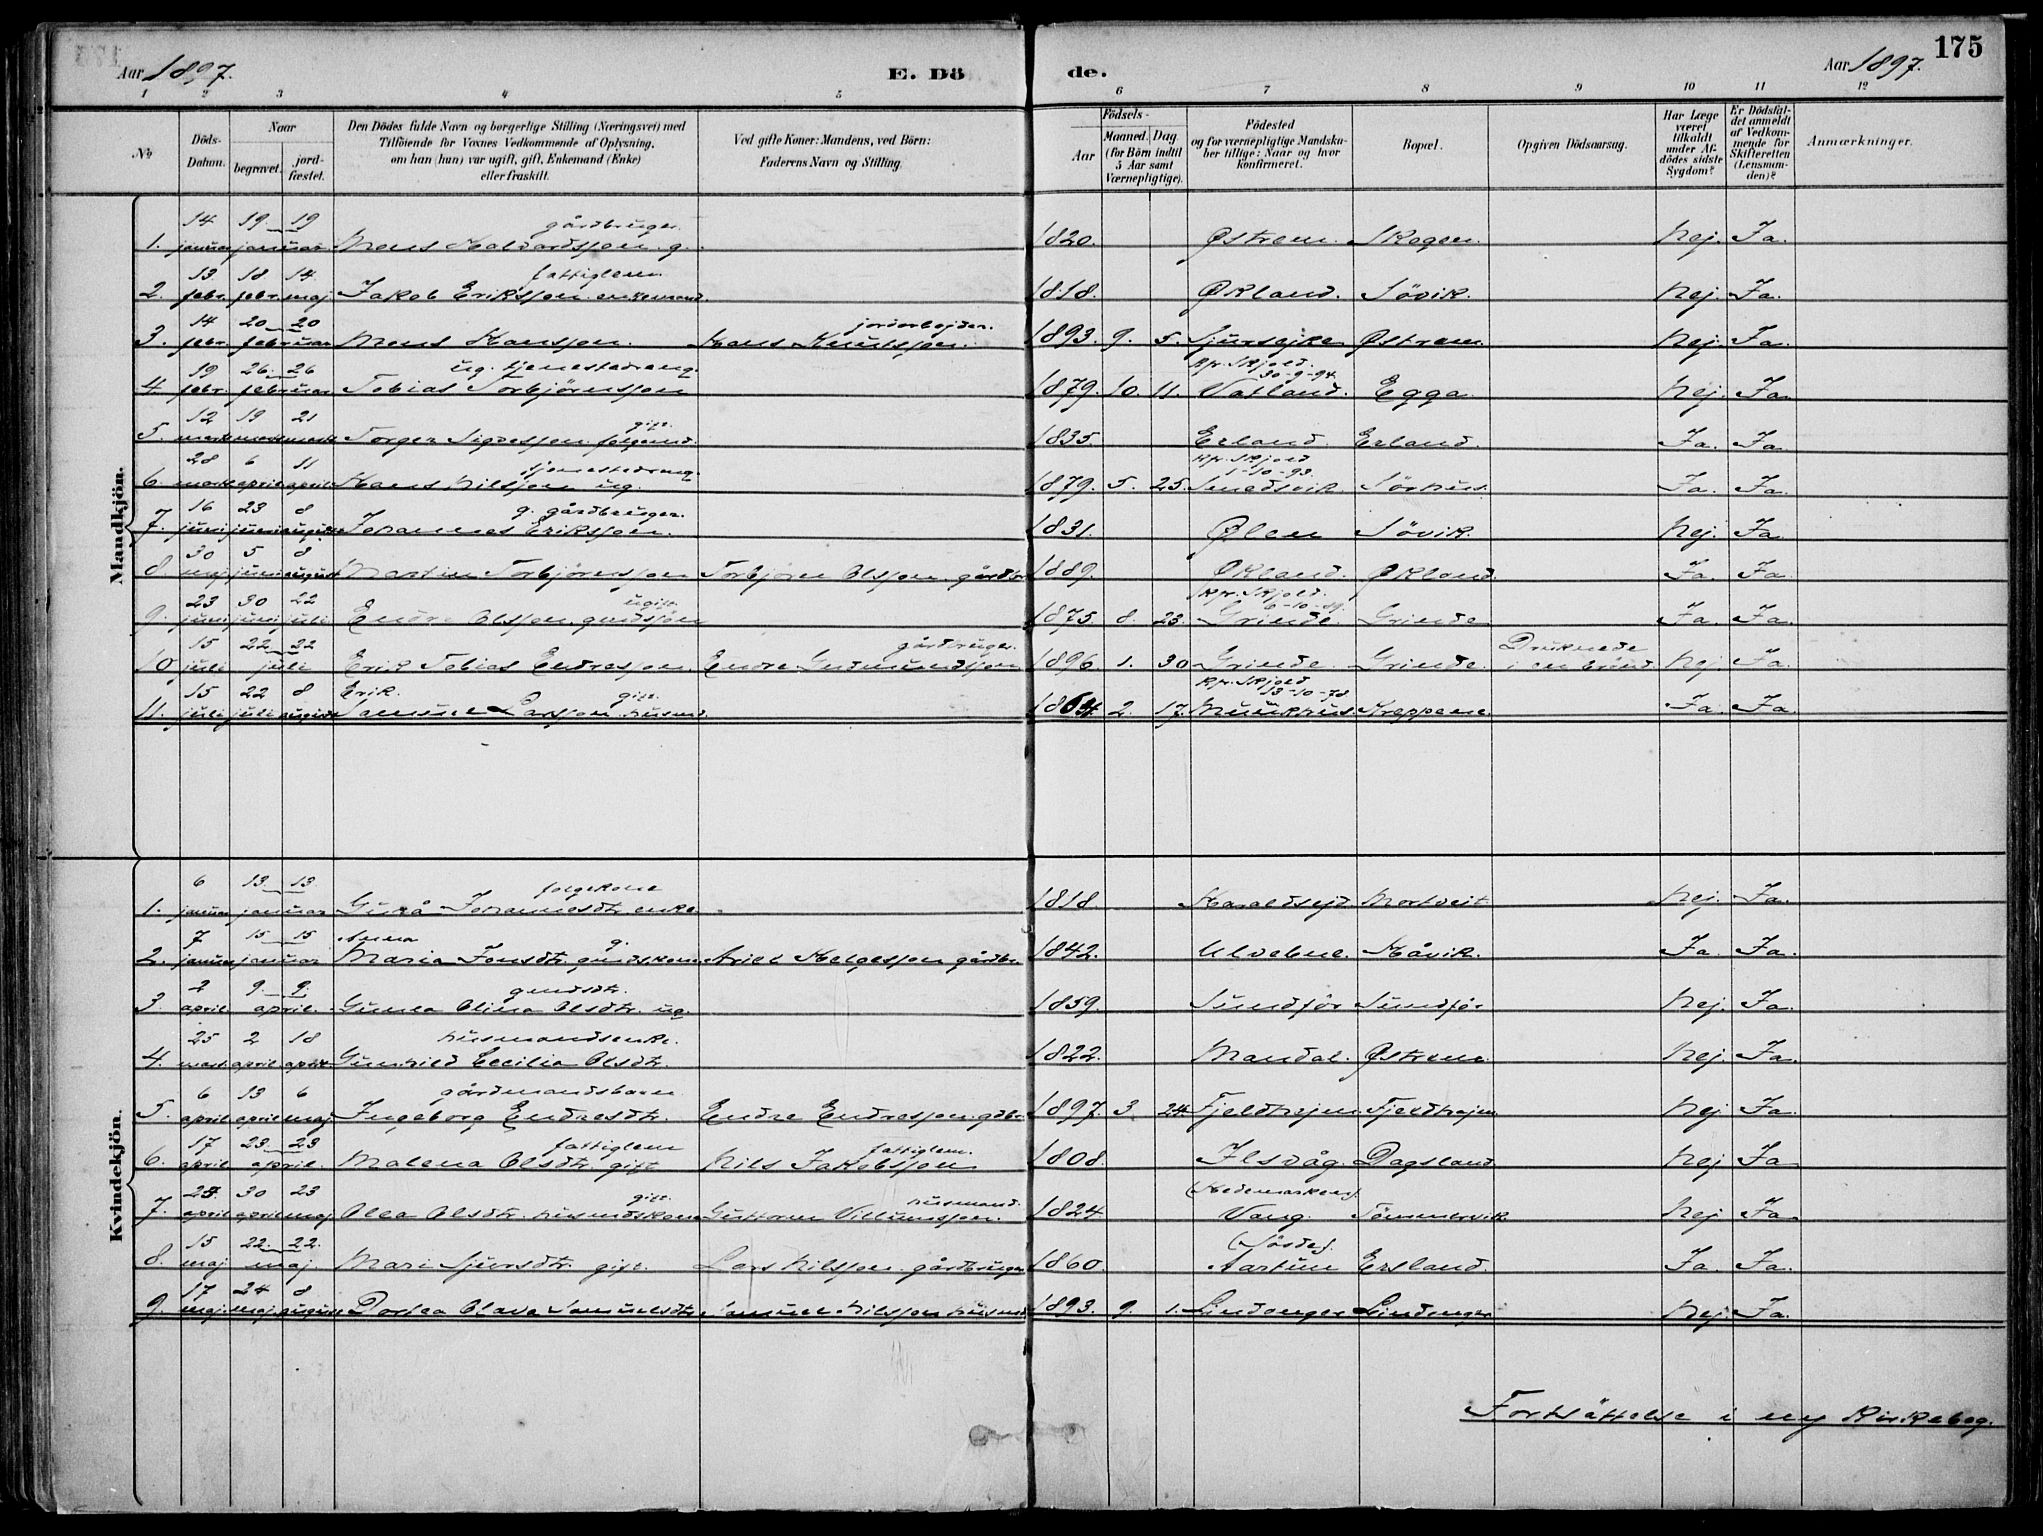 175
Aar 1897. E. Dö de. Aar 1897.
1 2 3 4 5 6 7 8 9 10 11 12
No
Döds-Datum.
Naar
begravet.
jord-fæstet.
Den Dödes fulde Navn og borgerlige Stilling (Næringsvei) med
Tilföiende for Voxnes Vedkommende af Oplysning,
om han (hun) var ugift, gift, Enkemand (Enke)
eller fraskilt.
Ved gifte Koner: Mandens, ved Börn:
Faderens Navn og Stilling.
Födsels-
Aar
Maaned. Dag.
(for Börn indtil
5 Aar samt
Værnepligtige).
Födested
og for værnepligtige Mandska-
ber tillige: Naar og hvor
konfirmeret.
Bopæl.
Opgiven Dödsaarsag.
Har Læge
været
tilkaldt
under Af-
dödes sidste
Sygdom?
Er Dödsfal-
det anmeldt
af Vedkom-
mende for
Skifteretten
(Lensman-
den)?
Anmærkninger.
Mandkjön.
14 19 19 gårdbruger.
1. januar januar Mons Halvardssøn. g. 1820. Østrem. Skogen. Nej. Ja.
13 18 14 fattiglem.
2. febr. febr. maj Jakob Erikssøn enkemand 1818. Økland. Søvik. Nej. Ja.
14 20 20 jordarbejder.
3. febr. februar Mons Hanssøn. Hans Knutssøn. 1893. 9. 5. Østrem Nej. Ja.
19 26. 26 ug. tjenestedreng. Kfr. Skjold. 30-9-94.
4. febr. februar Tobias Torbjørnssøn 1879. 10. 11. Vatland. Egga. Nej. Ja.
12 19 21 gift.
5. marts marts marts Torger Sigvessøn folgemd. 1835. Erland. Erland. Ja. Ja.
28 6 11 tjenestedreng. Kfr. Skjold 1-10-93.
6. marts april april Hans Nilssøn ug. 1879. 5. 25. Smedsvik. Sørhus. Ja. Ja.
16 23 8 g. gårdbruger.
7. juni juni august Johannes Erikssøn. 1831. Ølen Søvik. Nej. Ja.
30 5 8
8. maj juni august Martin Torbjørnssøn Torbjørn Olssøn. gårdbr 1889. Økland. Økland. Ja. Ja.
23 30 22 ugift. Kfr. Skjold. 6-10-89.
9. juni juni juli Endre Olssøn. grdssøn 1875. 8. 23. Grinde. Grinde Ja. Ja.
15 22 22 gårdbruger. Druknede
10 juli juli Erik Tobias Endressøn. Endre Gudmundssøn 1896. 1. 30 Grinde. Grinde. i en brønd. Nej. Ja.
15 22 8 Erik. gift. Kfr. Skjold 13-10-78
11. juli juli august Samuel Larssøn husmd. 1864. 2. 17. Munkhus. Kreppene. Ja. Ja.
Kvindekjön.
6 13 13 folgekone
1. januar januar Gurå Johannesdtr enke. 1818. Haraldsejd. Mortveit Nej. Ja.
7 15 15 Anna g.
2. januar januar Maria Jonsdtr. grdskone Arild Helgessøn gårdbr. 1842. Håvik. Ja. Ja.
2 9. 9. grdsdtr.
3 april. april. Gunla Olina Olsdtr. ug. 1859. Sundfør Sundfør Nej. Ja.
25 2 18 husmandsenke.
4. mars. april april Gunhild Cecilia Olsdtr. 1822. Mandal. Østrem. Nej. Ja.
6 13 6 gårdmandsbarn
5. april april maj Ingeborg Endresdtr. Endre Endressøn. gdbr. 1897. 3. 24. Fjeldhejm Fjeldhejm Nej Ja.
17 23. 23 fattiglem fattiglem.
6. april april. Malena Olsdtr gift Nils Jakobssøn 1808. Ilsvåg. Dagsland. Nej Ja
23. 30 23 gift. husmand. (Hedemarken).
7. april april maj Olea Olsdtr. husmdskone Guttorm Villumssøn. 1824. Vang. Tømmervik Nej Ja.
15 22. 22. (Søvde).
8. maj maj Mari Sjursdtr. gift. Lars Nilssøn. gårdbruger 1860. Aartun Ersland. Ja. Ja.
17 24 8
9. maj. maj. august Dortea Olava Samuelsdtr. Samuel Nilssøn husmd. 1893. 9. 1. Lindanger Lindanger Nej. Ja.
Fortsättelse i ny Kirkebog.